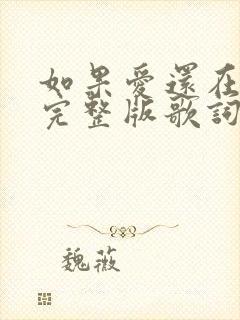 如果愛還在
完整版歌詞
魏薇